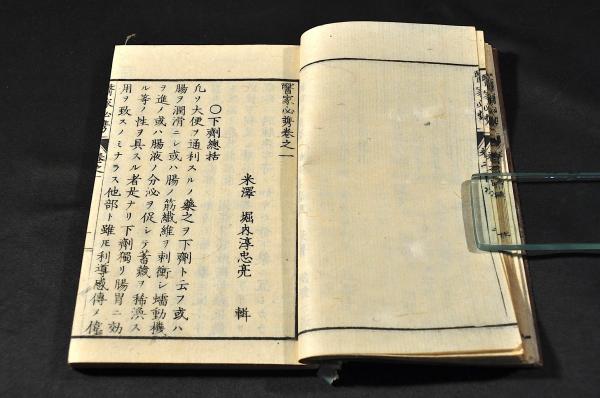 醫家必携卷之一
米澤 堀内淳忠亮 輯
〇下劑總括
凢ソ大便ヲ通利スルノ藥之ヲ下劑ト云フ或ハ
腸ヲ潤滑ニシ或ハ腸ノ筋纖維ヲ刺衝シ蠕動機
ヲ進メ或ハ腸液ノ分泌ヲ促シテ蓄藏ヲ稀渙ス
ル等ノ性ヲ具スル者是ナリ下劑獨リ腸胃ニ効
用ヲ致スノミナラス他部ト雖𪜈利導感傳ノ偉
卷之一